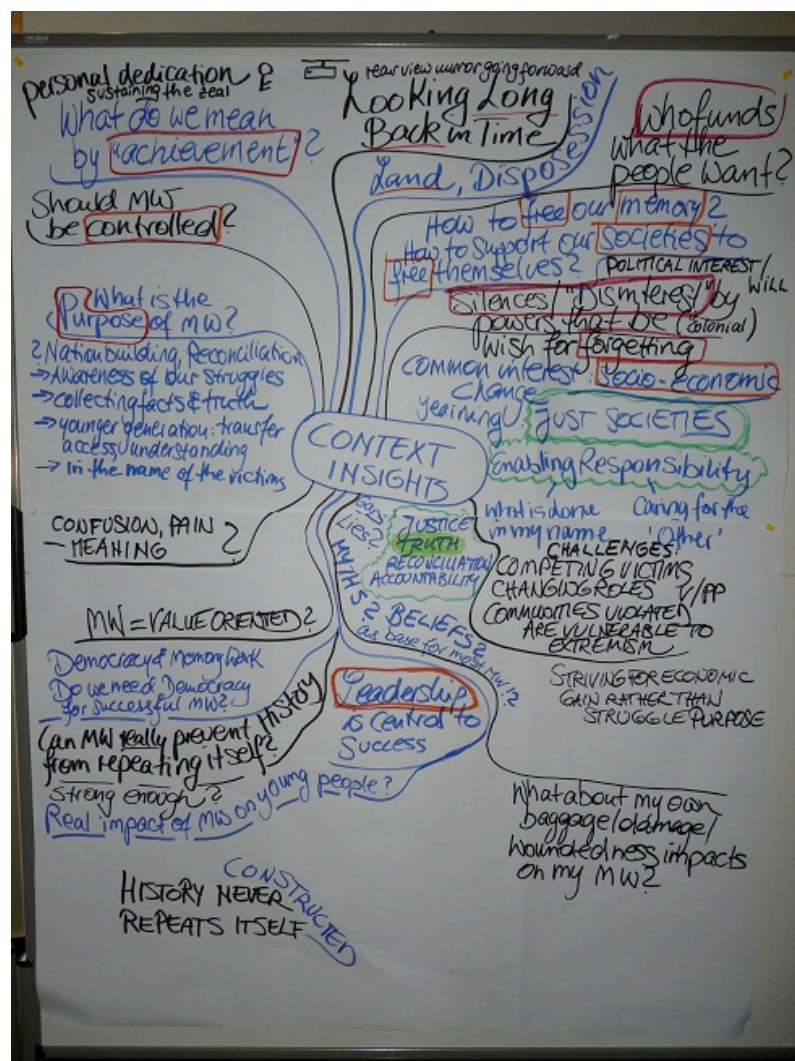 personal dedication
sustaining the zeal
What do we mean
by "achievement"?
Should MW
be controlled?
What is the
Purpose of MW?
? Nationbuilding, Reconciliation
→ Awareness of our struggles
→ collecting facts & truth
→ younger generation: transfer
access/understanding
→ In the name of the victims
CONFUSION, PAIN
– MEANING ?
MW = VALUE ORIENTED?
Democracy & Memory Work
Do we need Democracy
for successful MW?
Can MW really prevent History
from repeating itself?
strong enough?
Real impact of MW on young people?
HISTORY NEVER
REPEATS ITSELF
CONSTRUCTED
rear view mirror going forward
Looking Long
Back in Time
Land, Dispossession
Who funds
what the
people want?
How to free our memory?
How to support our societies to
free themselves?
POLITICAL INTEREST/
WILL
Silences/"Disinterest" by
powers that be (colonial)
wish for forgetting
common interest: socio-economic
change
yearning
JUST SOCIETIES
Enabling Responsibility
what is done
in my name
Caring for the
'Other'
CONTEXT
INSIGHTS
JUSTICE
TRUTH
RECONCILIATION
ACCOUNTABILITY
lies?
MYTHS? BELIEFS?
as base for most MW!?
Leadership
is central to
Success
CHALLENGES:
COMPETING VICTIMS
CHANGING ROLES V/PP
COMMUNITIES VIOLATED
ARE VULNERABLE TO
EXTREMISM
STRIVING FOR ECONOMIC
GAIN RATHER THAN
STRUGGLE PURPOSE
What about my own
baggage/damage/
woundedness impacts
on my MW?